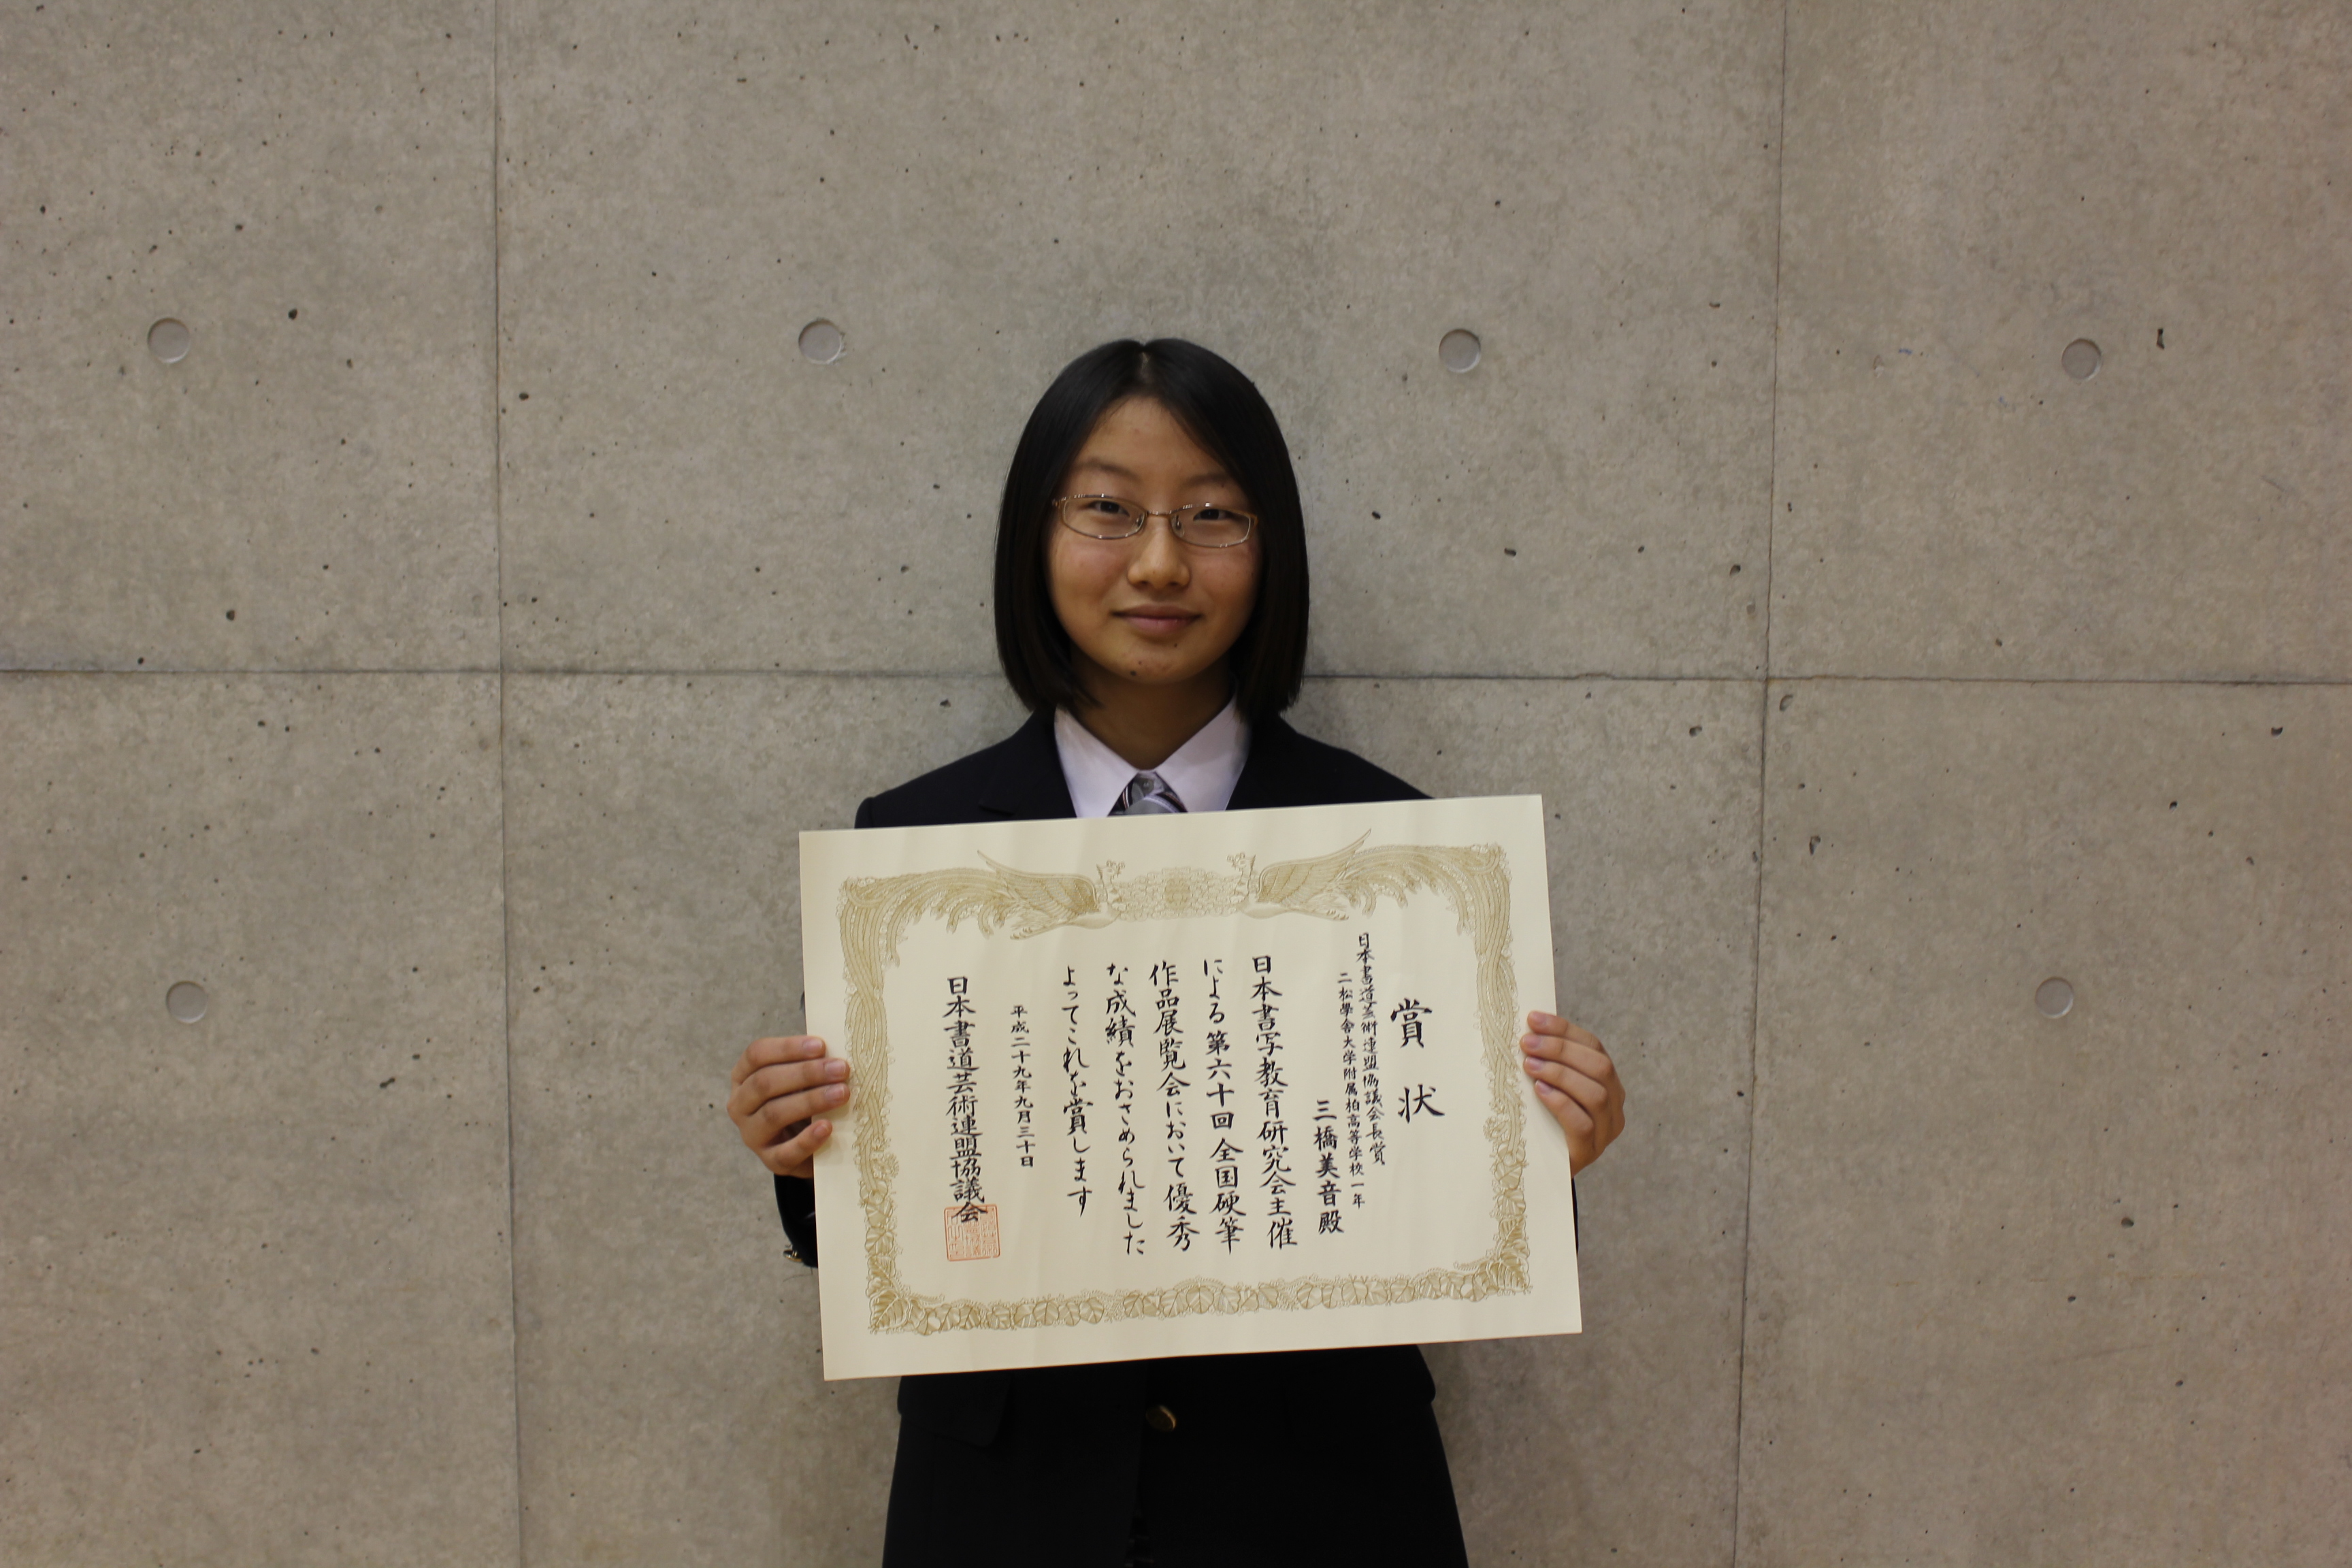 賞状
日本書道芸術連盟協議会長賞
二松學舍大学附属柏高等学校一年
三橋美音殿
日本書写教育研究会主催
による第六十回全国硬筆
作品展覧会において優秀
な成績をおさめられました
よってこれを賞します
平成二十九年九月三十日
日本書道芸術連盟協議会